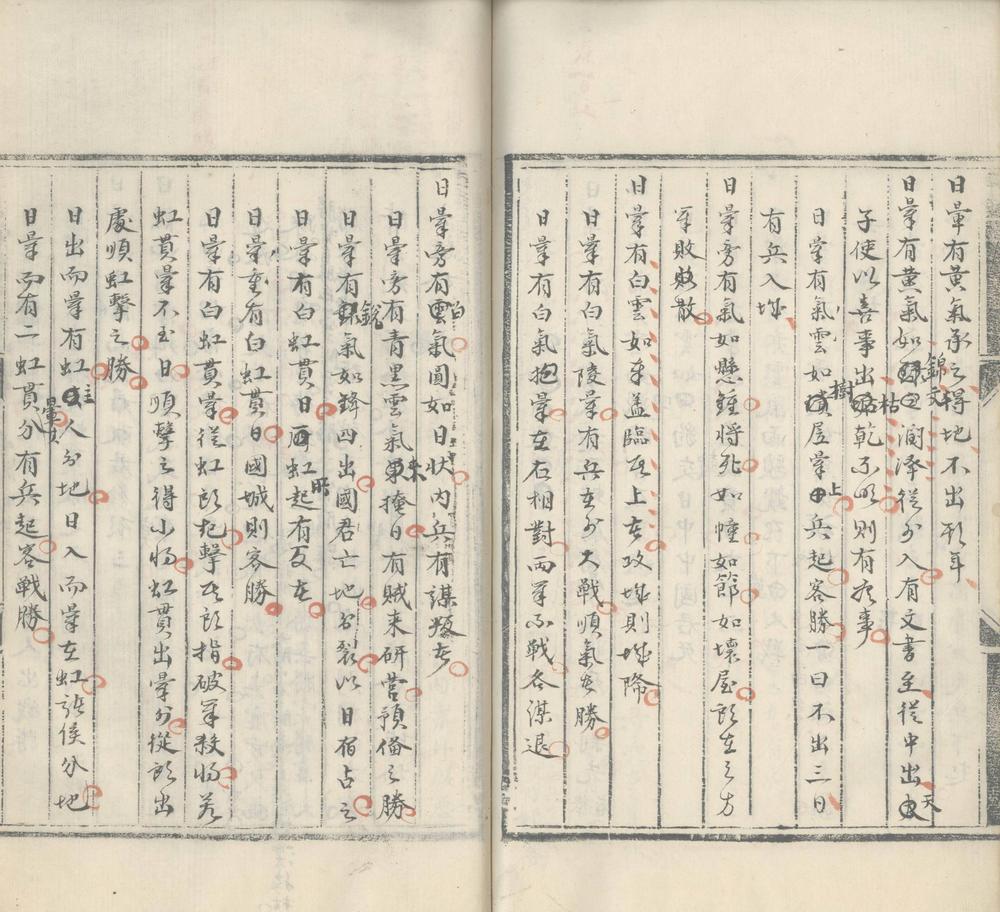 日暈有黃氣承之得地不出期年
日暈有黃氣如錦文潤澤從外入有文書至從中出天
子使以喜事出枯乾不明則有疾事
日暈有氣雲如樹屋暈上兵起客勝一曰不出三日
有兵入城
日暈旁有氣如懸鍾將死如幢如節如壞屋所在之方
軍敗散
日暈有白雲如車蓋臨其上者攻城則城降
日暈有白氣陵暈有兵在外大戰順氣者勝
日暈有白氣抱暈在右相對兩軍不戰各謀退
日暈旁有白氣圓如日狀內兵有謀叛者
日暈旁有青黑雲氣来掩日有賊来斫營預備之勝
日暈有銳氣如鋒四出國君亡地分裂以日宿占之
日暈有白虹貫日所虹起有反者
日暈重有白虹貫日國城則客勝
日暈有白虹貫暈從虹所起擊其所指破軍殺將若
虹貫暈不至日順擊之得小將虹貫出暈外從所出
處順虹擊之勝
日出而暈有虹主人分地日入而暈在虹諸侯分地
日暈而有二虹貫分有兵起客戰勝